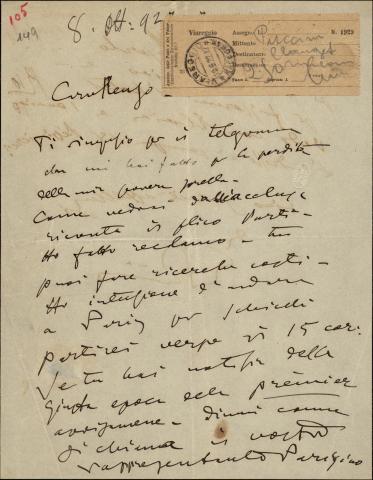 105
149
8. Ott. 922
Viareggio
Assegno
N. 1929
Mittente Puccini
Destinatario
Destinazione
Caro Renzo
Ti ringrazio per il telegramma
che mi hai fatto per la perdita
della mia povera sorella.
Come vedrai dall'acclusa
ricevuta il plico partì.
Ho fatto reclamo - tu
puoi fare ricerche costì.
Ho intenzione d'andare
a Parigi per Schicchi
partirei verso il 15 corr.
Se tu hai notizie della
giusta epoca della première
avvisamene - dimmi come
si chiama il vostro
rappresentante Parigino